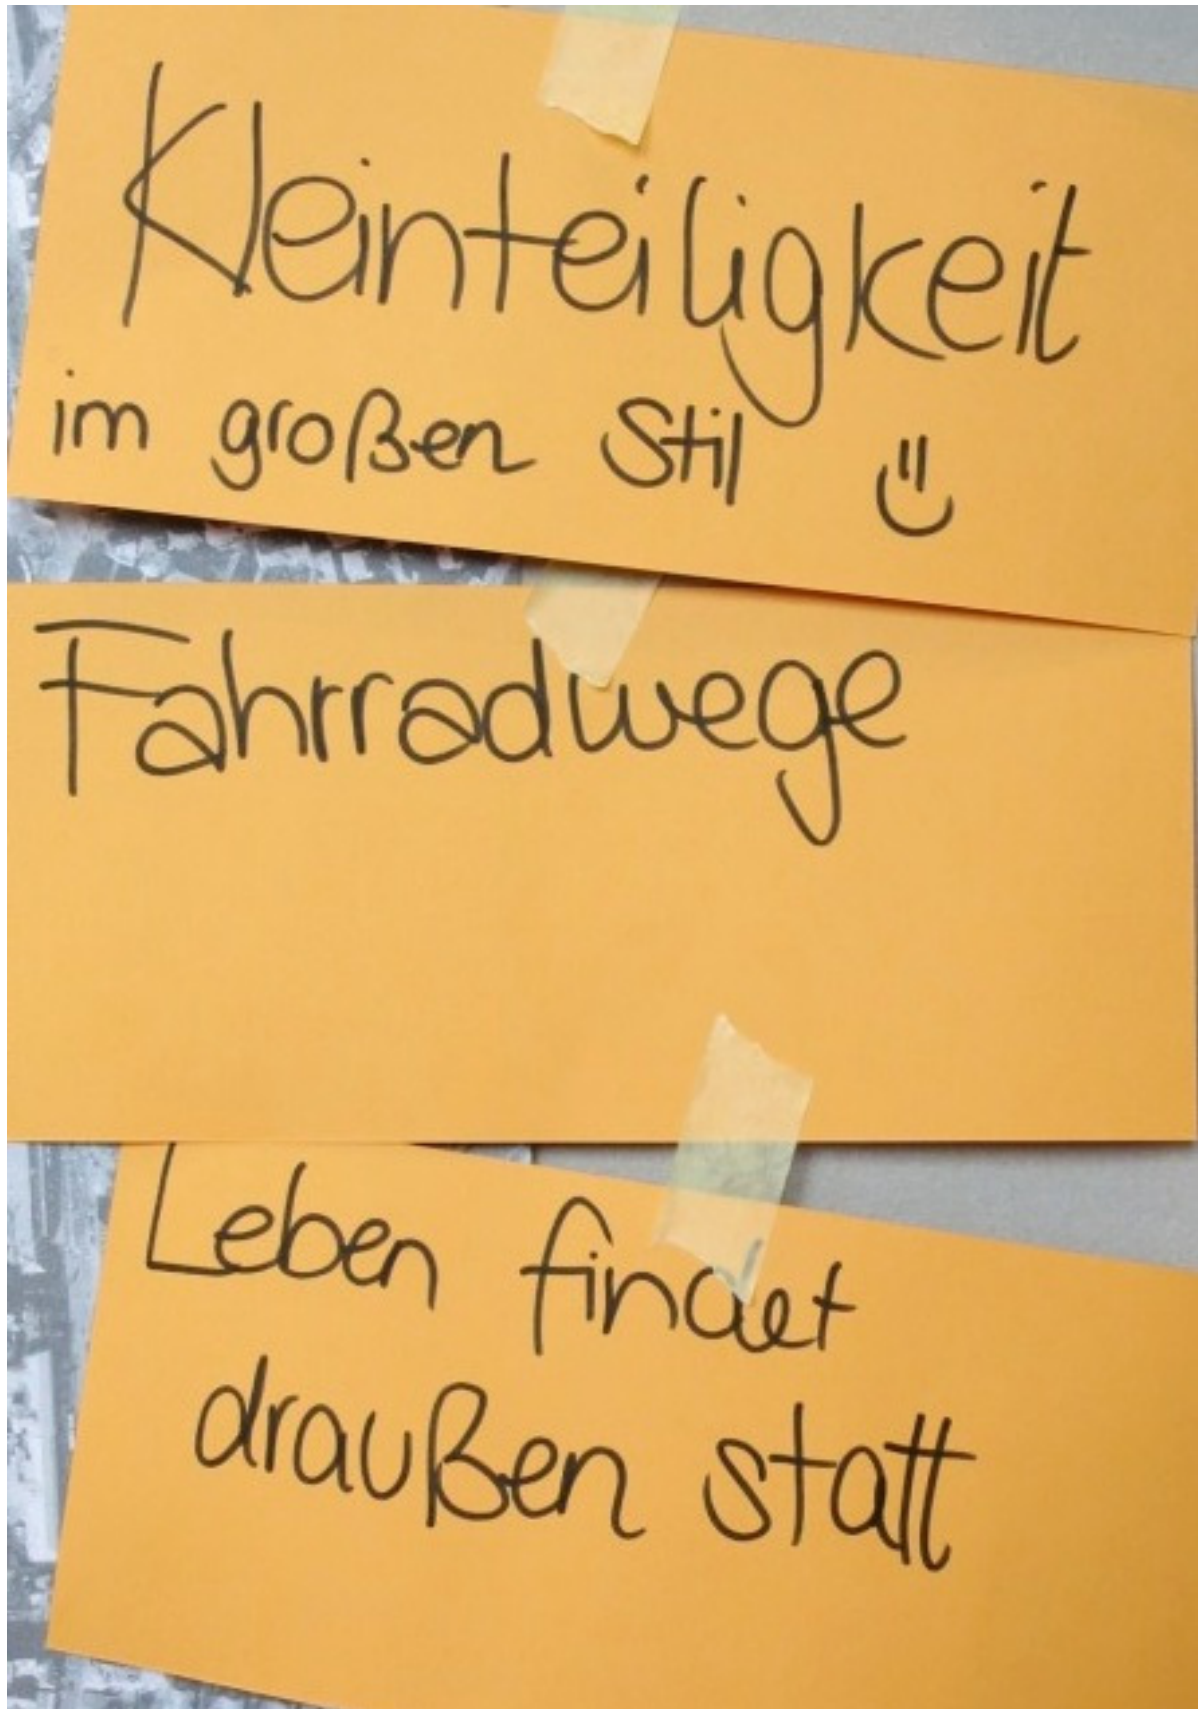 Kleinteiligkeit
im großen Stil
Fahrradwege
Leben findet
draußen statt